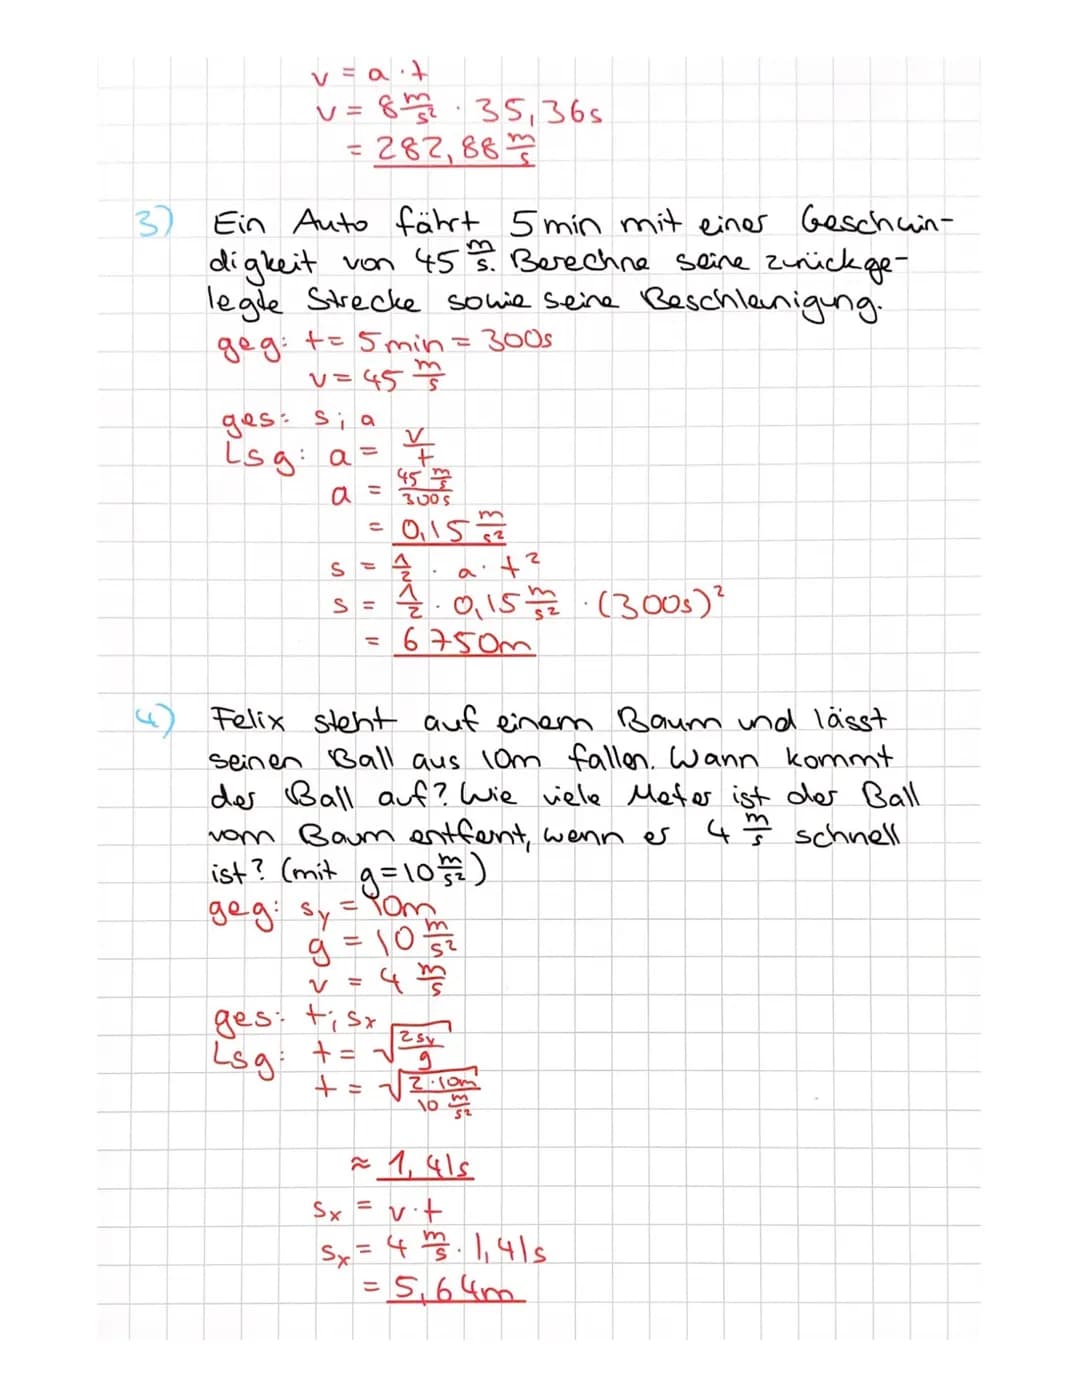 v = a · t
v = 8 m/s² · 35,36s
= 282,88 m/s
3) Ein Auto fährt 5min mit einer Geschwin-
digkeit von 45 m/s. Berechne seine zurückge-
legte Strecke sowie seine Beschleunigung.
geg: t = 5min = 300s
v = 45 m/s
ges: s; a
Lsg: a = v/t
a = 45 m/s / 300s
= 0,15 m/s²
s = 1/2 · a · t²
s = 1/2 · 0,15 m/s² · (300s)²
= 6750m
4) Felix steht auf einem Baum und lässt
seinen Ball aus 10m fallen. Wann kommt
der Ball auf? Wie viele Meter ist der Ball
vom Baum entfernt, wenn er 4 m/s schnell
ist? (mit g=10 m/s²)
geg: sy = 10m
g = 10 m/s²
v = 4 m/s
ges: t; sx
Lsg: t = √(2sy/g)
t = √(2·10m / 10 m/s²)
≈ 1,41s
sx = v · t
sx = 4 m/s · 1,41s
= 5,64m